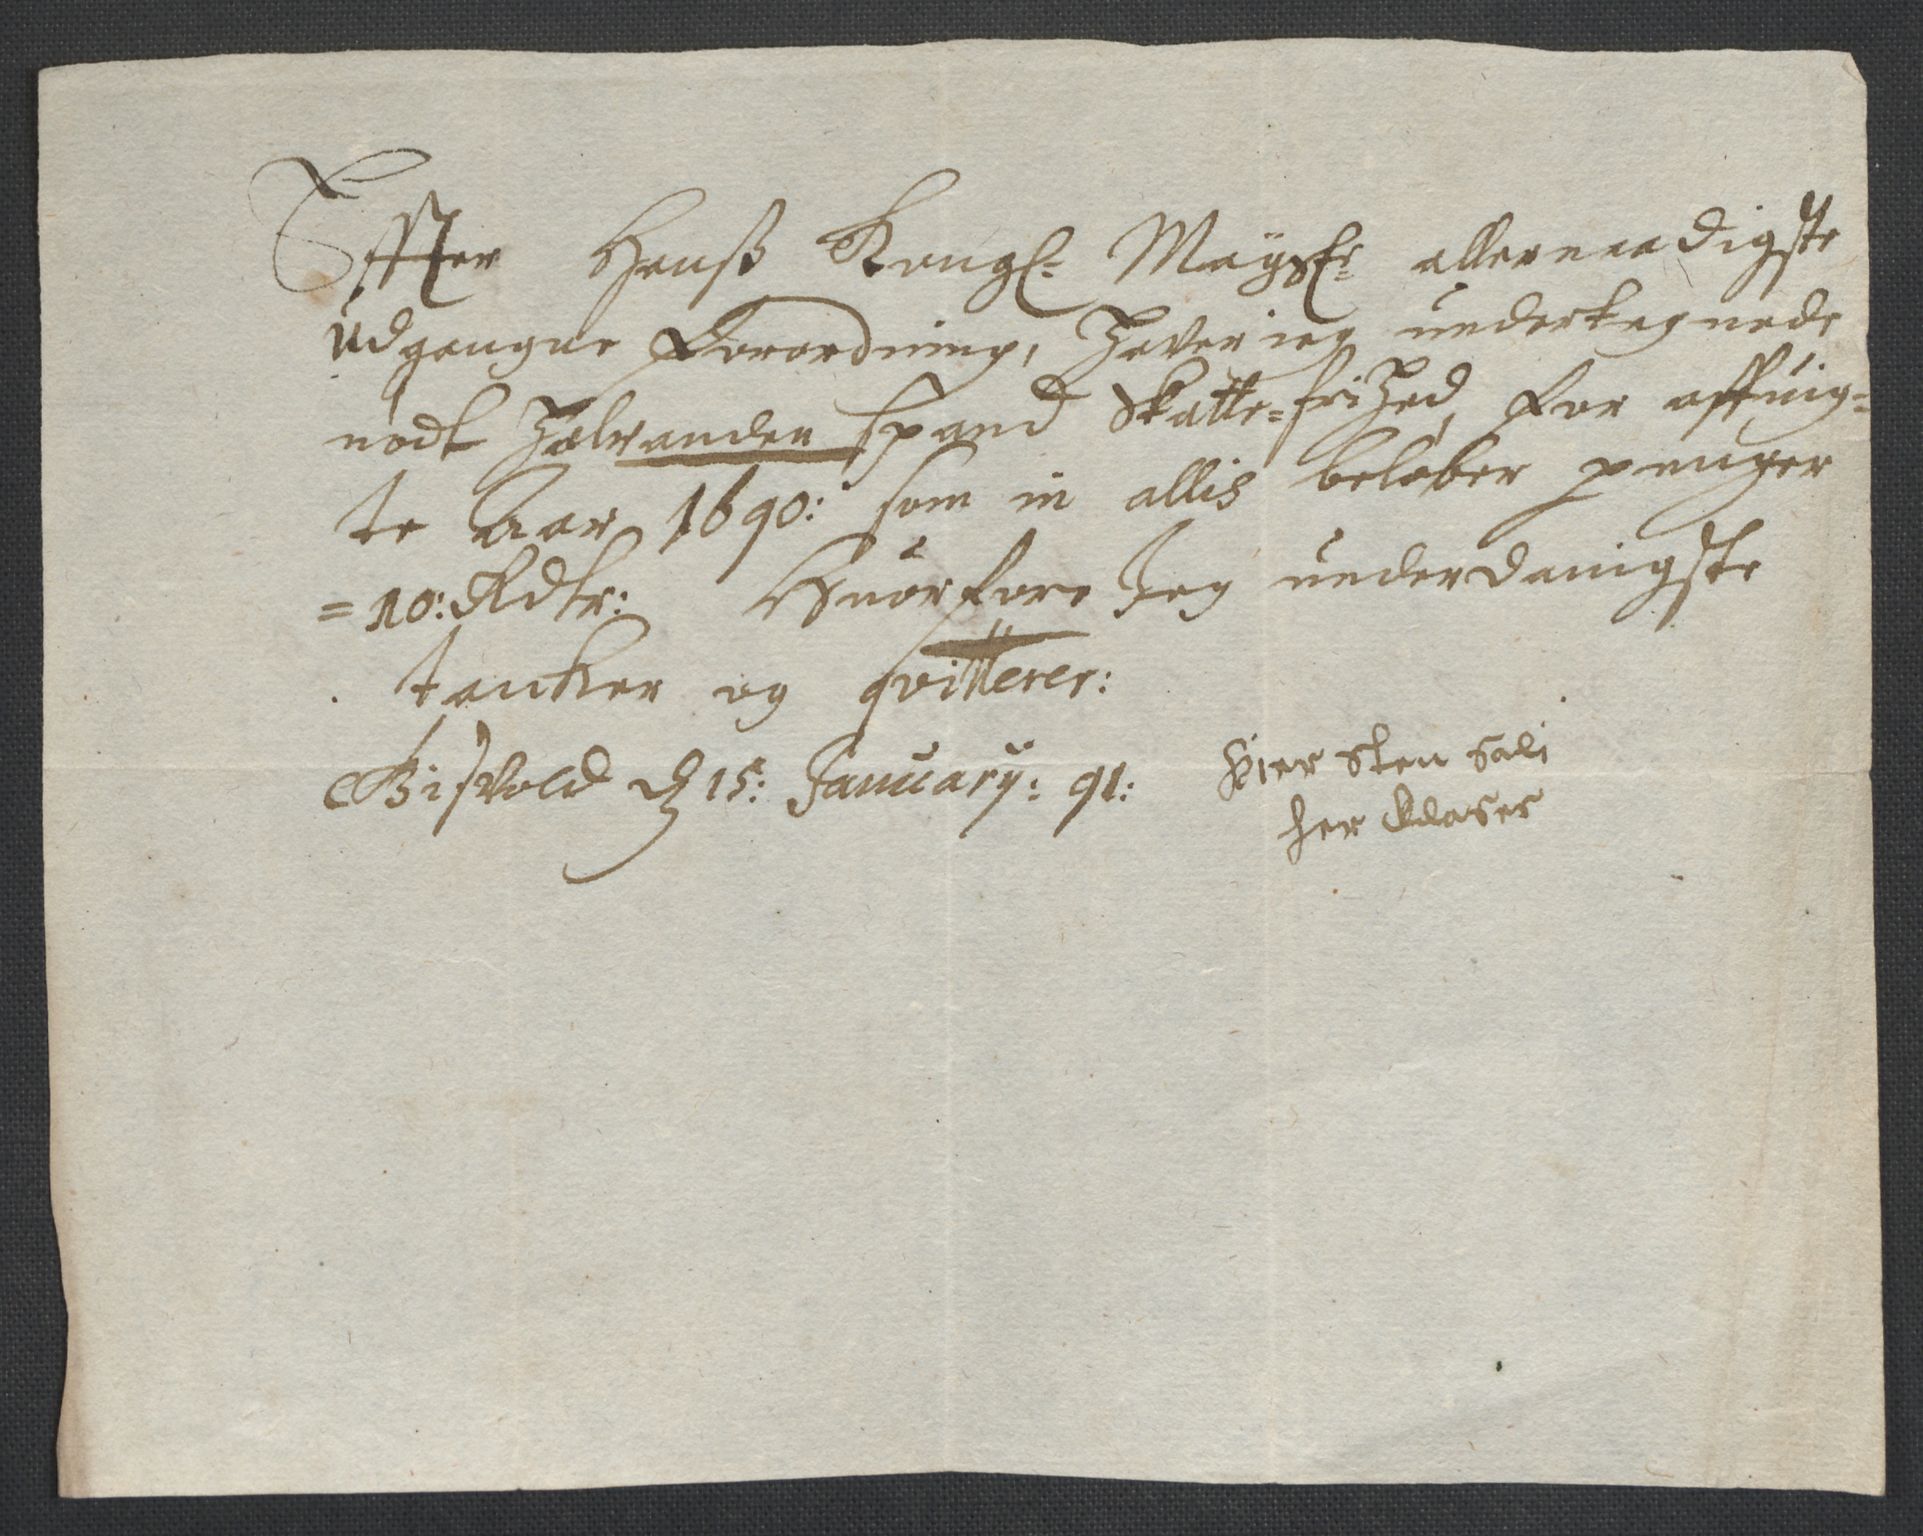 Effter Hanß Kongl: Mayst: allernaadigste
udgangne Forordning, Haver ieg undertegnede
nødt Halvanden spand Skatte=friHed, for affvig=
te Aar 1690: som in allis beløber penger
=10: Rdlr: Huorfore Jeg underdanigste
tancker og qvitterer:
Bisvold d 15: January: 91: Hier Sten Sali
her Klases